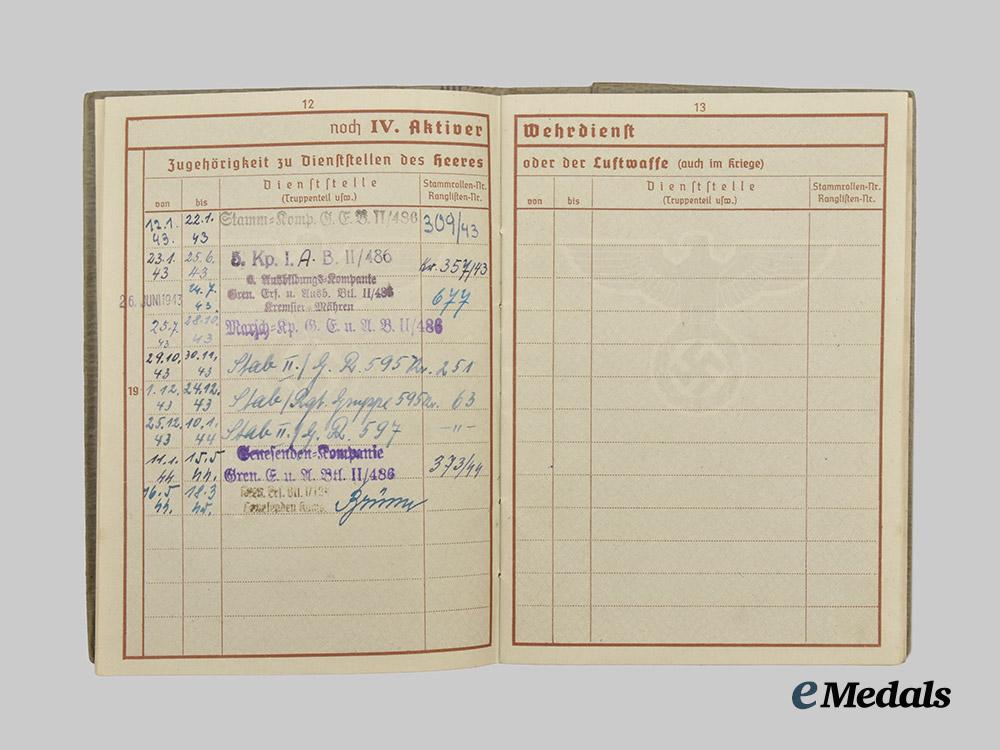 12
noch IV. Aktiver
Zugehörigkeit zu Dienststellen des Heeres
von bis Dienststelle (Truppenteil usw.) Stammrollen-Nr. Ranglisten-Nr.
12.1. 43. 22.1. 43 Stamm-Komp. G. E. B. II/486 309/43
23.1. 43 25.6. 43 5. Kp. I. A. B. II/486 Kr. 357/43
26. JUNI 1943 24.7. 43. 6. Ausbildungs-Kompanie
Gren. Ers. u. Ausb. Btl. II/486 677
Kremsier-Mähren
25.7. 43 28.10. 43 Marsch-Kp. G. E. u. A. B. II/486
29.10. 43 30.11. 43 Stab II./G. R. 595 Nr. 251
19
1.12. 43 24.12. 43 Stab/Rgt. Gruppe 595 Nr. 63
25.12. 43 10.1. 44 Stab II./G. R. 597 -"-
11.1. 44. 15.5 44. Genesenden-Kompanie
Gren. E. u. A. Btl. II/486 373/44
16.5 44. 18.3 45.
13
Wehrdienst
oder der Luftwaffe (auch im Kriege)
von bis Dienststelle (Truppenteil usw.) Stammrollen-Nr. Ranglisten-Nr.
eMedals